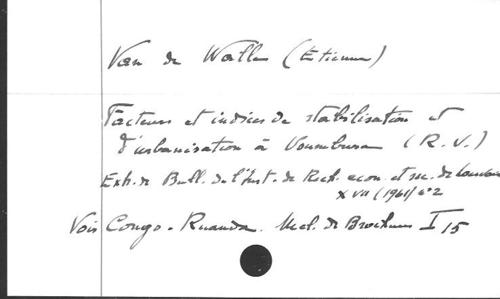 Van de Walle (Etienne)
Facteurs et indices de stabilisation et
d'urbanisation à Usumbura (R. U.)
Extr. de Bull. de l'Inst. de Rech. econ. et soc. de Louvain
XVII (1961) n° 2
Vois Congo - Ruanda. Mel. de Brochures I 15